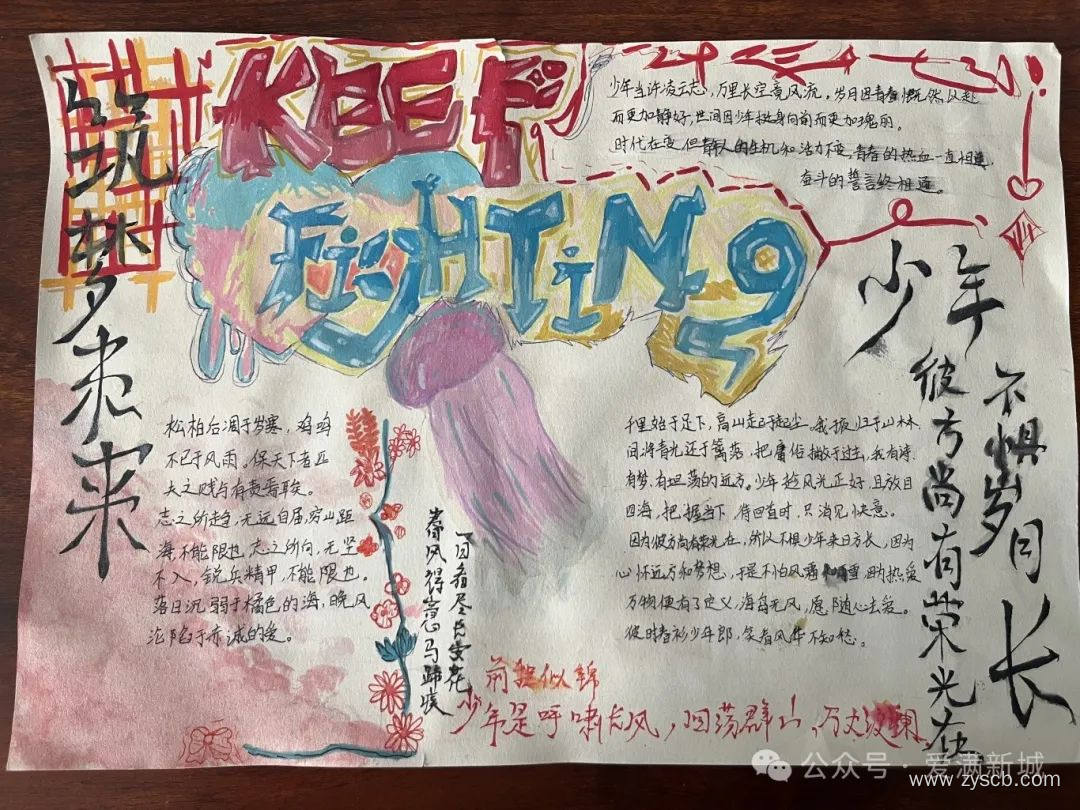 筑梦未来
KEEP
FIGHTING
少年当许凌云志,万里长空竞风流。岁月因青春慨然以赴
而更加静好,世间因少年挺身向前而更加瑰丽。
时代在变,但 的生机和活力不变,青春的热血一直相连,
奋斗的誓言终相逢。
少年
不惧岁月长
彼方尚有荣光在
松柏后凋于岁寒,鸡鸣
不已于风雨。保天下者匹
夫之贱与有责焉耳矣。
志之所趋,无远自届,穷山距
海,不能限也。志之所向,无坚
不入,锐兵精甲,不能限也。
落日沉弱于橘色的海,晚风
沦陷于赤诚的爱。
春风得意马蹄疾
一日看尽长安花
千里始于足下,高山起于 尘。我 归于山林
间,将青光还于篱落,把庸俗撇于过去,我有诗
有梦,有坦荡的远方。少年 风光正好,且放目
四海,把握当下,待回首时,只消见快意。
因为彼方尚有荣光在,所以不惧少年来日方长,因为
心怀远方和梦想,于是不怕风霜 ,因为热爱
万物便有了定义,海岛无风,愿随心去爱。
彼时青衫少年郎,笑看风华不知愁。
前程似锦
少年是呼啸长风,回荡群山,万丈波澜
公众号·爱满新城
www.zyscb.com